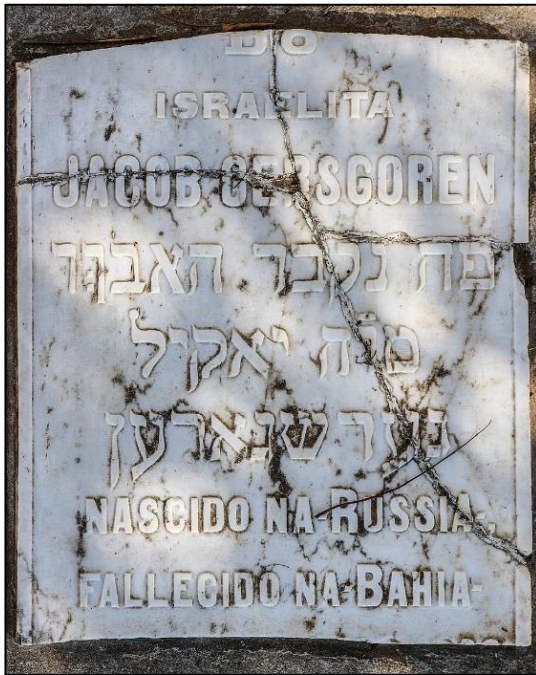 DO
ISRAELITA
JACOB GERSGOREN
פה נקבר
מ״ה יאקיל
גער שגארען
NASCIDO NA RUSSIA-
FALLECIDO NA BAHIA-